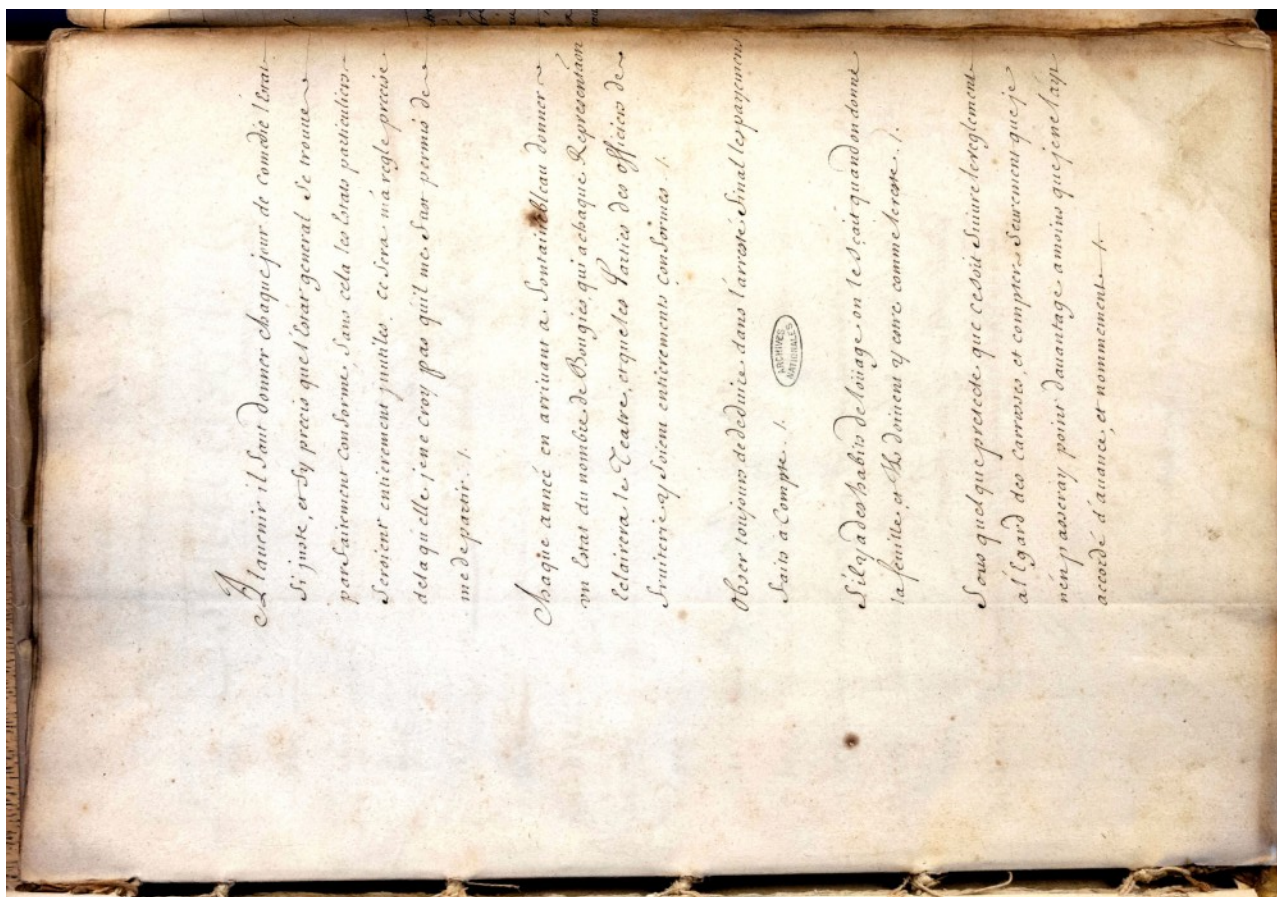 A l'auenir il faut donner chaque jour de comédie l'estat
si juste, et sy precis que l'estat general se trouue
parfaitement conforme, sans cela les estats particuliers
seroient entierement jnutiles. ce sera ma regle precise
de la quelle je ne croy pas qu'il me faut permis de
me departir ./.
Chaque année en arriuant a fontainebleau donner
vn estat du nombre de Bougies qui a chaque Representaon
éclairera le Teatre, et que les Parties des officiers de
fruiterie y soient entierements conformes ./.
Obser toujours de deduire dans l'arresté final les payemens
faits a Compte ./.
S'il y a des habits de loüage on le sçait quand on donne
la feuille, et Ils doiuent y estre comme le reste ./.
Sous quelque pretexte que ce soit suiure le reglement
a l'égard des carrosses, et compter seurement que je
n'en passeray point dauantage a moins que je ne l'aye
accordé d'auance, et nommement ./.
ARCHIVES
NATIONALES